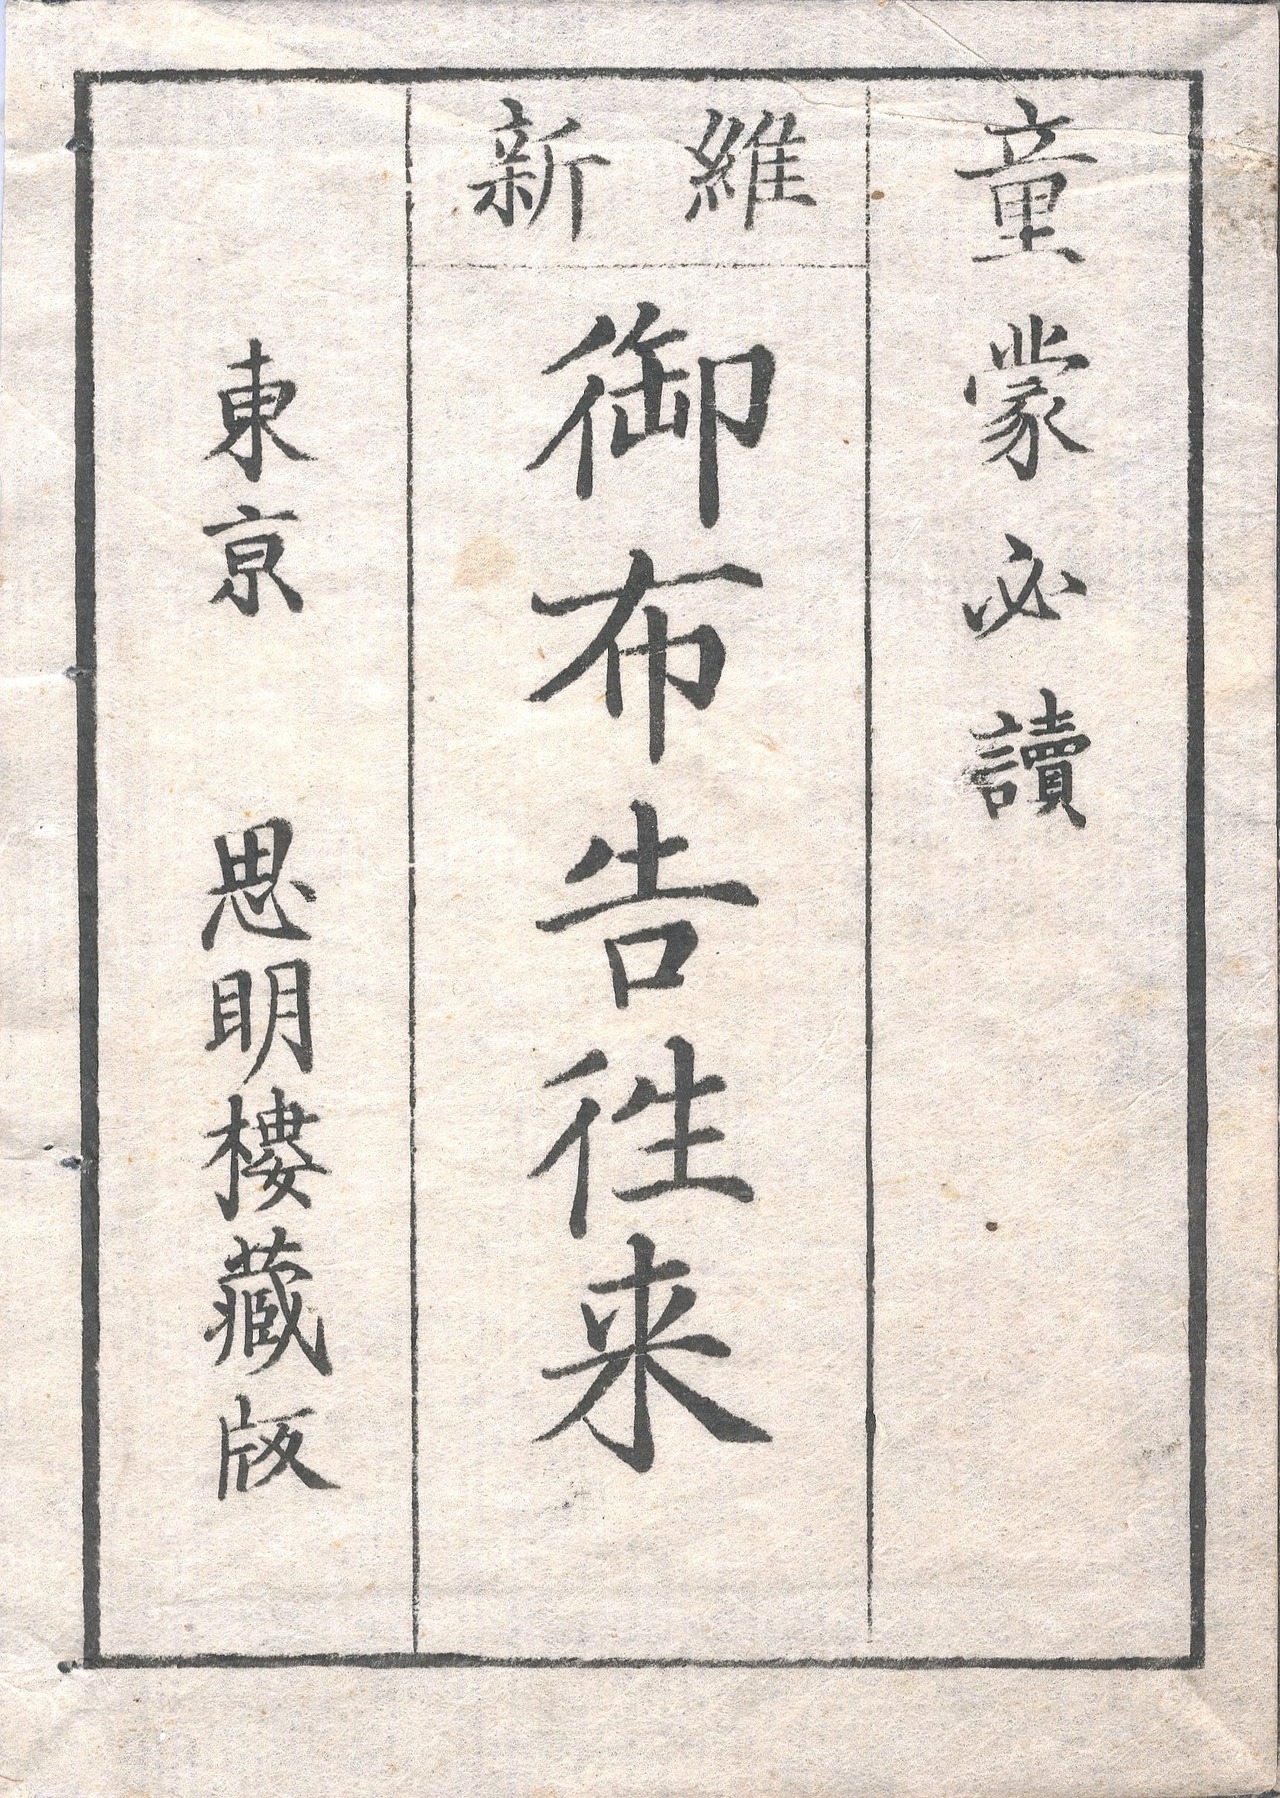 童蒙必讀
維新
御布告往来
東京 思明樓藏版